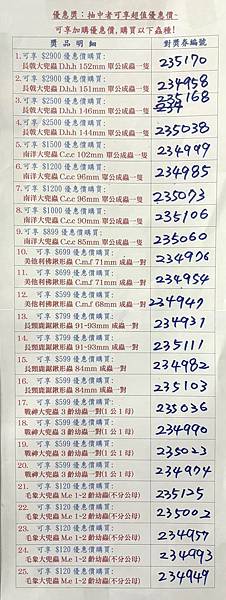 優惠獎：抽中者可享超值優惠價~
可享加購優惠價,購買以下蟲種!
獎 品 明 細 對獎券編號
1.可享 $2900 優惠價購買:
長戟大兜蟲 D.h.h 152mm 單公成蟲一隻 235170
2.可享 $2900 優惠價購買:
長戟大兜蟲 D.h.h 151mm 單公成蟲一隻 234958
3.可享 $2500 優惠價購買:
長戟大兜蟲 D.h.h 146mm 單公成蟲一隻 235168
4.可享 $2500 優惠價購買:
長戟大兜蟲 D.h.h 144mm 單公成蟲一隻 235038
5.可享 $1500 優惠價購買:
南洋大兜蟲 C.c.c 102mm 單公成蟲一隻 234999
6.可享 $1200 優惠價購買:
南洋大兜蟲 C.c.c 96mm 單公成蟲一隻 234985
7.可享 $1200 優惠價購買:
南洋大兜蟲 C.c.c 96mm 單公成蟲一隻 235073
8.可享 $1000 優惠價購買:
南洋大兜蟲 C.c.c 90mm 單公成蟲一隻 235106
9.可享 $899 優惠價購買:
南洋大兜蟲 C.c.c 85mm 單公成蟲一隻 235060
10. 可享 $699 優惠價購買:
美他利佛鍬形蟲 C.m.f 71mm 成蟲一對 234976
11. 可享 $699 優惠價購買:
美他利佛鍬形蟲 C.m.f 71mm 成蟲一對 234954
12. 可享 $599 優惠價購買:
美他利佛鍬形蟲 C.m.f 68mm 成蟲一對 234947
13. 可享 $799 優惠價購買:
長頸鹿鋸鍬形蟲 91-93mm 成蟲一對 234931
14. 可享 $799 優惠價購買:
長頸鹿鋸鍬形蟲 91-93mm 成蟲一對 235111
15. 可享 $699 優惠價購買:
長頸鹿鋸鍬形蟲 84mm 成蟲一對 234982
16. 可享 $699 優惠價購買:
長頸鹿鋸鍬形蟲 84mm 成蟲一對 235103
17. 可享 $599 優惠價購買:
戰神大兜蟲 3 齡幼蟲一對(1 公 1 母) 235036
18. 可享 $599 優惠價購買:
戰神大兜蟲 3 齡幼蟲一對(1 公 1 母) 234990
19. 可享 $599 優惠價購買:
戰神大兜蟲 3 齡幼蟲一對(1 公 1 母) 235023
20. 可享 $599 優惠價購買:
戰神大兜蟲 3 齡幼蟲一對(1 公 1 母) 234974
21. 可享 $120 優惠價購買:
毛象大兜蟲 M.e 1~2 齡幼蟲(不分公母) 235125
22. 可享 $120 優惠價購買:
毛象大兜蟲 M.e 1~2 齡幼蟲(不分公母) 235002
23. 可享 $120 優惠價購買:
毛象大兜蟲 M.e 1~2 齡幼蟲(不分公母) 234957
24. 可享 $120 優惠價購買:
毛象大兜蟲 M.e 1~2 齡幼蟲(不分公母) 234993
25. 可享 $120 優惠價購買:
毛象大兜蟲 M.e 1~2 齡幼蟲(不分公母) 234949